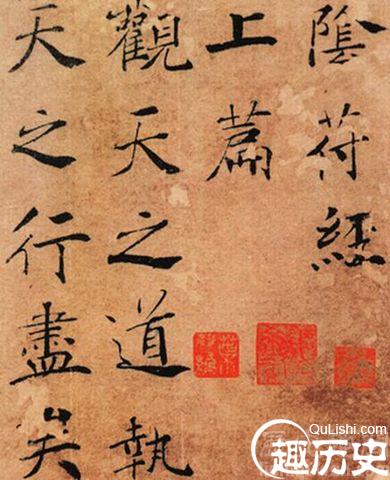 陰符經
上篇
觀天之道執
天之行盡矣
QuLishi.com
趣历史